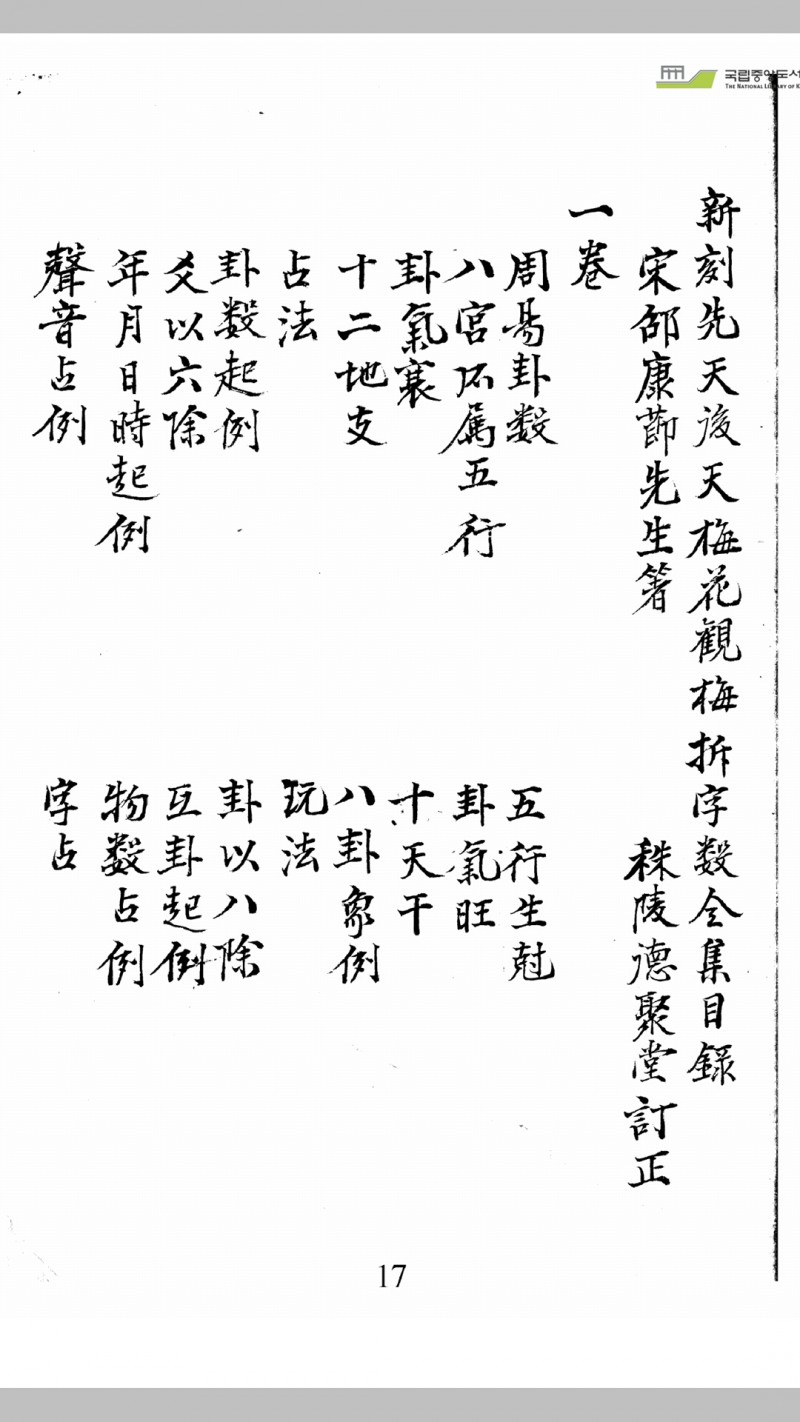 국립중앙도서
THE NATIONAL LIBRARY OF K
新刻先天後天梅花觀梅拆字数全集目錄
宋邵康節先生著 秣陵德聚堂訂正
一卷
周易卦数 五行生尅
八宮所屬五行 卦氣旺
卦氣衰 十天干
十二地支 八卦象例
占法 玩法
卦数起例 卦以八除
爻以六除 互卦起例
年月日時起例 物数占例
聲音占例 字占
17